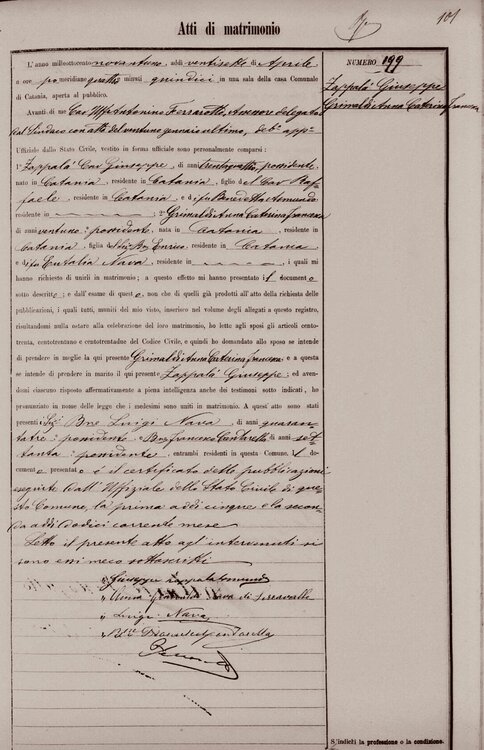 101
Atti di matrimonio
NUMERO 199
Zappalà Giuseppe
Grimaldi Anna Caterina Francesca
L'anno milleottocento novantuno, addì ventisette di Aprile
a ore pomeridiane quattro minuti quindici in una sala della casa Comunale
di Catania, aperta al pubblico.
Avanti di me Cav Antonino Ferrarotto, Assessore delegato
dal Sindaco con atto del ventuno gennaio ultimo,
Uffiziale dello Stato Civile, vestito in forma ufficiale sono personalmente comparsi:
1° Zappalà Cav Giuseppe, di anni trentaquattro, possidente
nato in Catania, residente in Catania, figlio del Cav Raf
faele, residente in Catania e di fu Benedetta Asmundo
residente in ; 2° Grimaldi Anna Caterina Francesca
di anni ventuno: possidente, nata in Catania, residente in
Catania, figlia del Enrico, residente in Catania
e di fu Eutalia Nava, residente in , i quali mi
hanno richiesto di unirli in matrimonio; a questo effetto mi hanno presentato il documento
sotto descritto; e dall'esame di questo, non che di quelli già prodotti all'atto della richiesta delle
pubblicazioni, i quali tutti, muniti del mio visto, inserisco nel volume degli allegati a questo registro,
risultandomi nulla ostare alla celebrazione del loro matrimonio, ho letto agli sposi gli articoli cento-
trenta, centotrentuno e centotrentadue del Codice Civile, e quindi ho domandato allo sposo se intende
di prendere in moglie la qui presente Grimaldi Anna Caterina Francesca, e a questa
se intende di prendere in marito il qui presente Zappalà Giuseppe; ed aven-
domi ciascuno risposto affermativamente a piena intelligenza anche dei testimoni sotto indicati, ho
pronunziato in nome della legge che i medesimi sono uniti in matrimonio. A quest' atto sono stati
presenti i Sigi Bne Luigi Nava, di anni quaran
tatre: possidente e Francesco di anni set
tanta: possidente, entrambi residenti in questo Comune. Il do-
cumento presentato é il certificato delle pubblicazioni
eseguite dall'Uffiziale dello Stato Civile di que
sto Comune, la prima addì cinque e la secon
da addì dodici corrente mese
Letto il presente atto agli intervenuti si
sono essi meco sottoscritti
Giuseppe Zappalà Asmundo
Anna Grimaldi Nava di Serravalle
Luigi Nava
S'indichi la professione o la condizione.